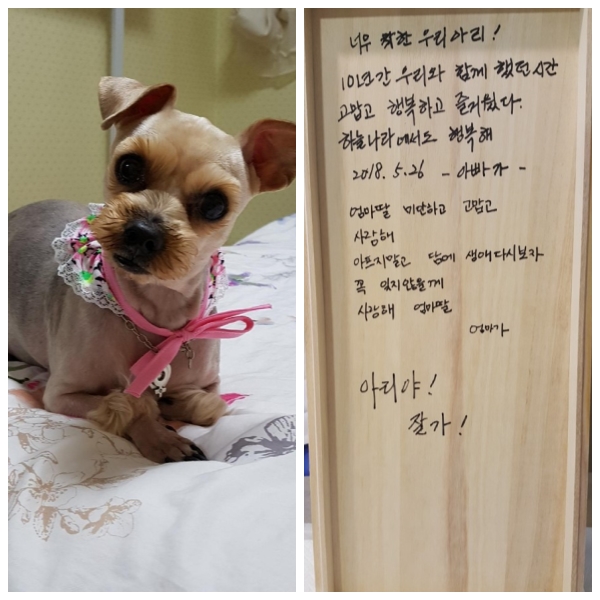 너무 착한 우리아리!
10년간 우리와 함께 했던 시간
고맙고 행복하고 즐거웠다.
하늘나라에서도 행복해
2018. 5. 26 - 아빠가 -
엄마딸 미안하고 고맙고
사랑해
아프지말고 담에 생애다시보자
꼭 잊지않을게
사랑해 엄마딸
엄마가
아리야!
잘가!